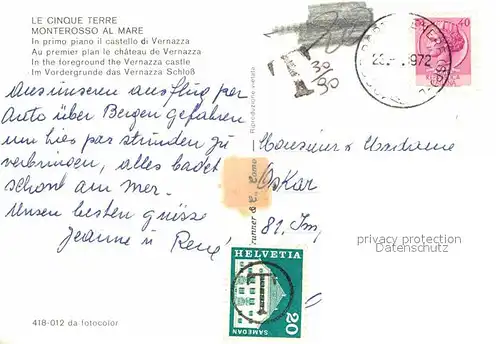 LE CINQUE TERRE
MONTEROSSO AL MARE
In primo piano il castello di Vernazza
Au premier plan le château de Vernazza
In the foreground the Vernazza castle
Im Vordergrunde das Vernazza Schloß
Aus unseren ausflug per
Auto über Bergen gefahren
um hier par stunden zu
verbringen, alles badet
schon am Mer.
Unsen besten grüsse
Jeanne u René
418-012 da fotocolor
Riproduzione vietata
runner & C., Como
T
30/90
40
1972
Monsieur & Madame
Oskar
81. Im
privacy protection
Datenschutz
HELVETIA
T
SAMEDAN
20